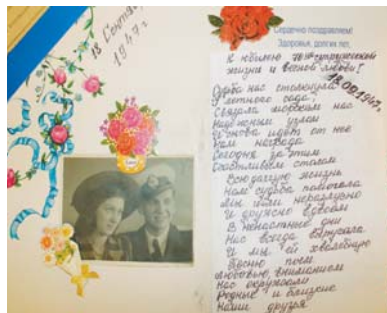 18 Сентября
1947 г
Сердечно поздравляем!
Здоровья, долгих лет,
К юбилею 70 супружеской
жизни и вечной любви!
18.09.1947г
Судьба нас столкнула
У летнего сада,
Связала морским нас
Надёжным узлом
идёт от нее
Нам награда
Сегодня за этим
Счастливым столом
Всю долгую жизнь
Нам судьба помогала
Мы шли неразлучно
И дружно вдвоем
В ненастные дни
Нас всегда
И мы ей хвалебную
Песню поем
Любовью вниманием
Нас окружали
Родные и близкие
Наши друзья